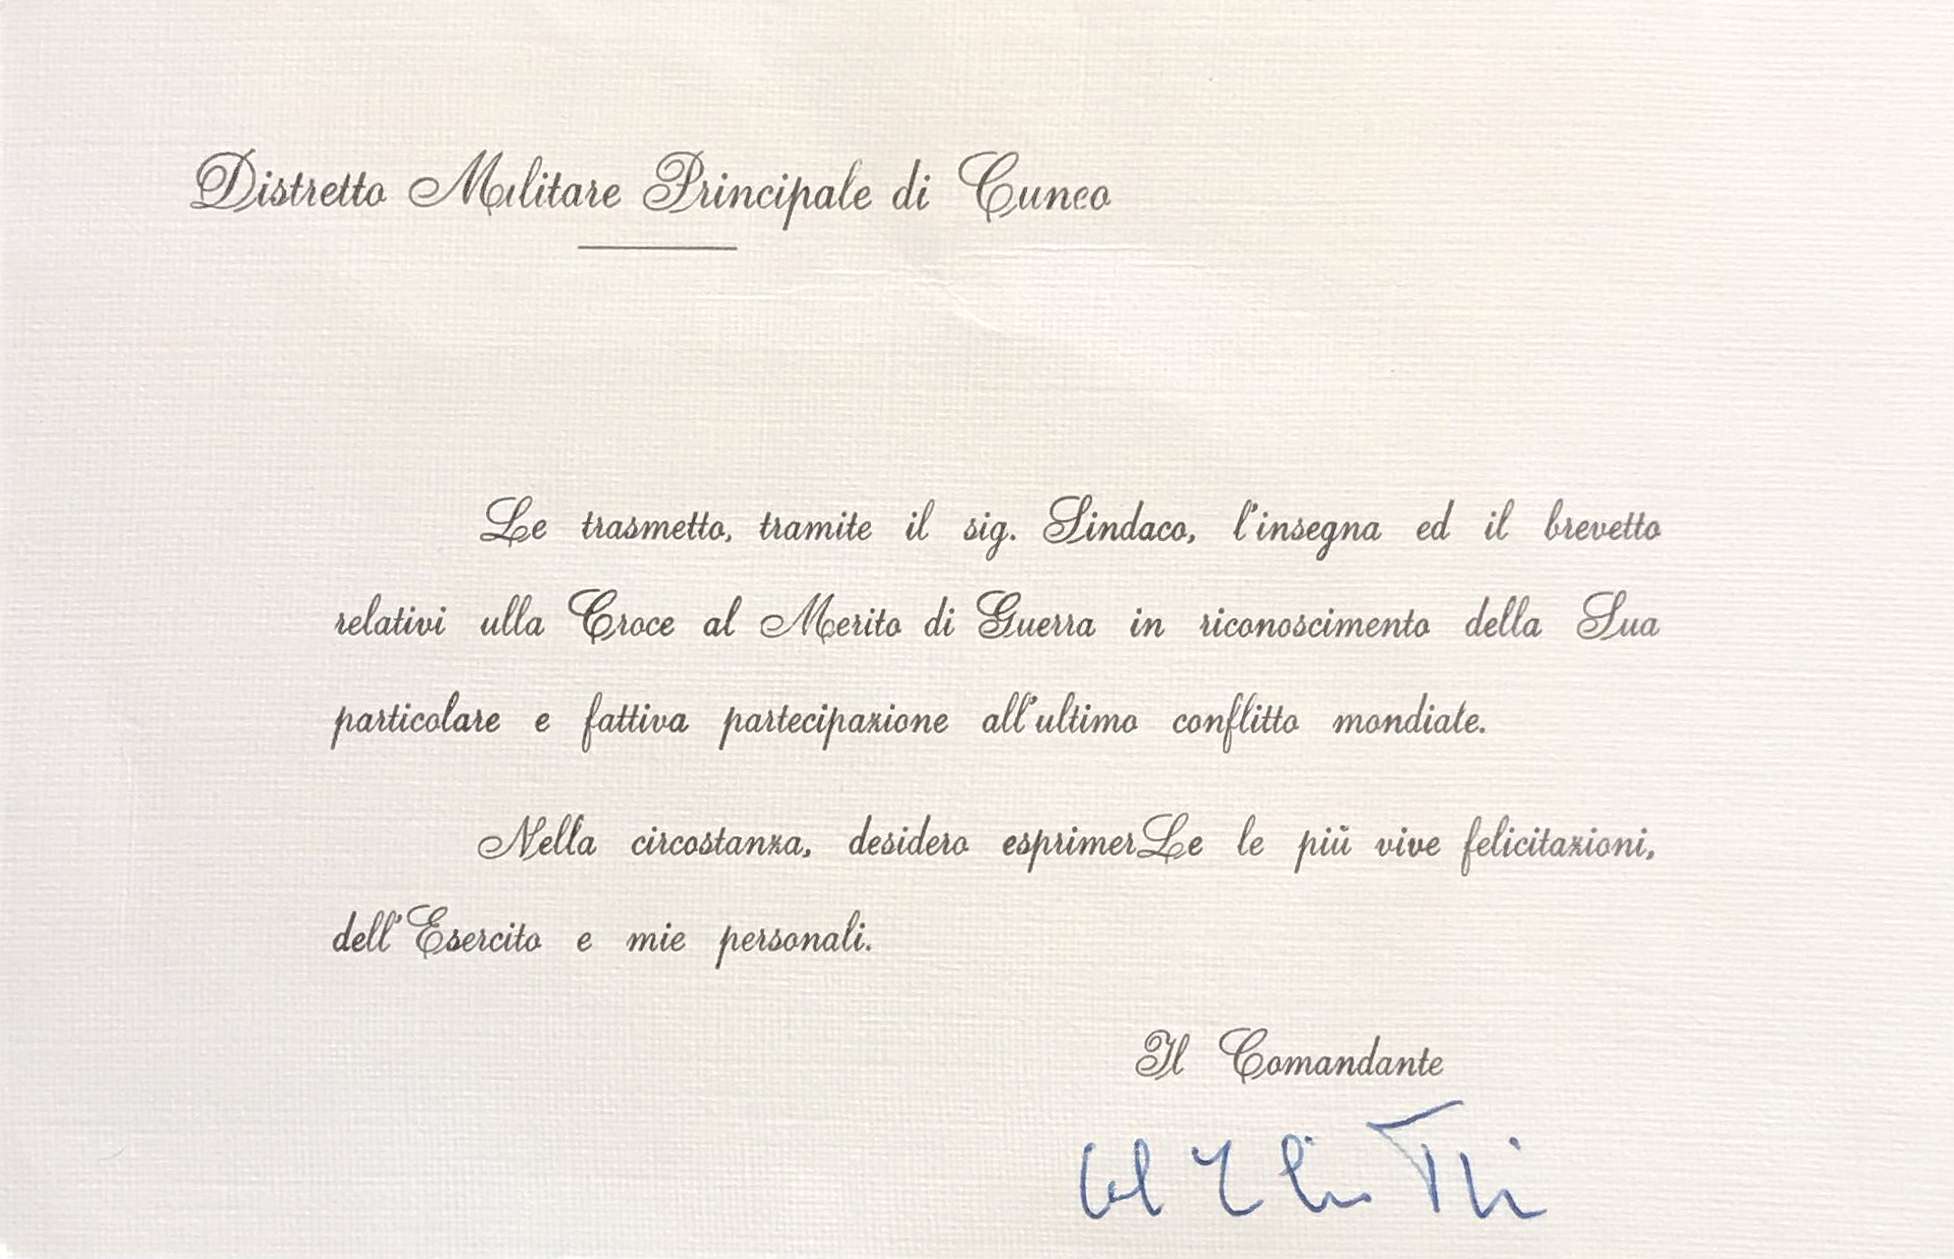 Distretto Militare Principale di Cuneo
Le trasmetto, tramite il sig. Sindaco, l'insegna ed il brevetto
relativi alla Croce al Merito di Guerra in riconoscimento della Sua
particolare e fattiva partecipazione all'ultimo conflitto mondiale.
Nella circostanza, desidero esprimerLe le più vive felicitazioni,
dell'Esercito e mie personali.
Il Comandante